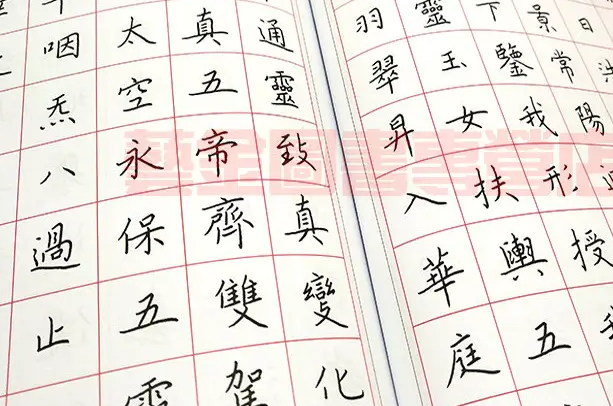 日
景常陽
下鑒我形授我
靈玉女扶輿五
羽翠昇入華庭
通靈致真變化
真五帝齊雙駕
太空永保五
咽炁八過止
藝金圖書專營店